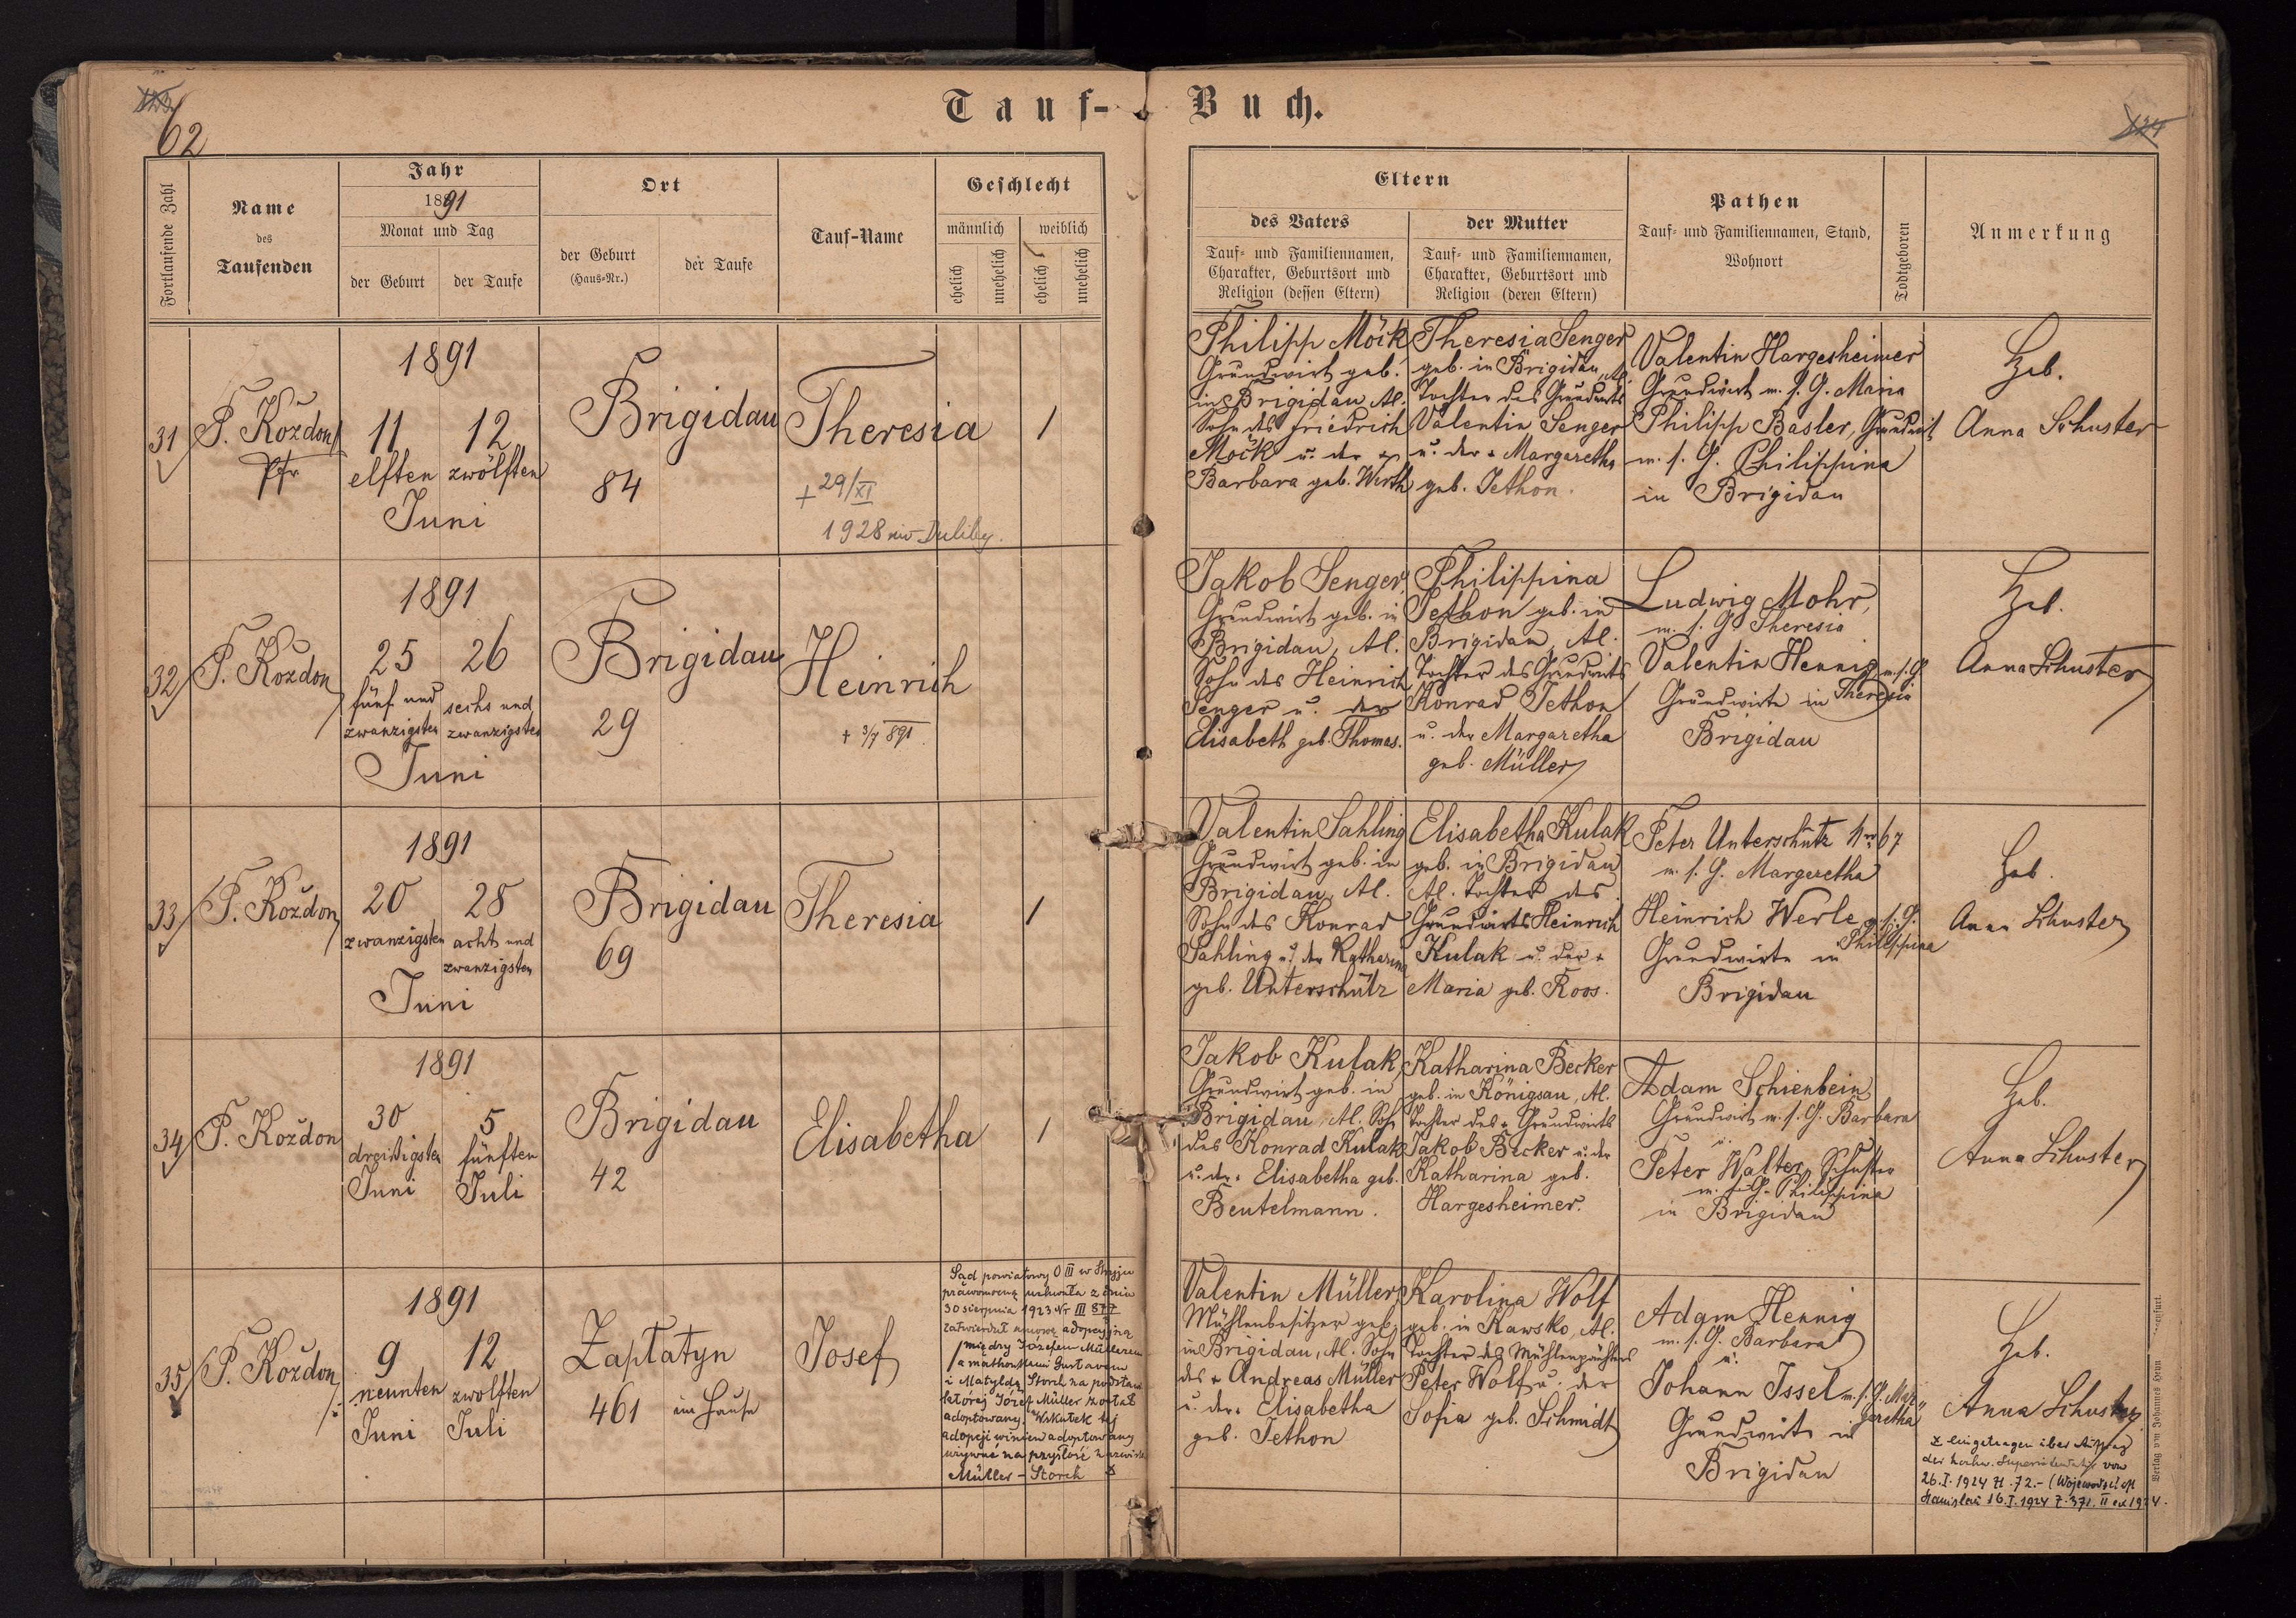 62
Tauf-Buch.
Fortlaufende Zahl
Name
des
Taufenden
Jahr
1891
Monat und Tag
der Geburt
der Taufe
Ort
der Geburt
(Haus=Nr.)
der Taufe
Tauf-Name
Geschlecht
männlich
weiblich
ehelich
unehelich
ehelich
unehelich
Eltern
des Vaters
Tauf= und Familiennamen,
Charakter, Geburtsort und
Religion (dessen Eltern)
der Mutter
Tauf= und Familiennamen,
Charakter, Geburtsort und
Religion (deren Eltern)
Pathen
Tauf= und Familiennamen, Stand,
Wohnort
Todtgeboren
Anmerkung
31
P. Koždon
Pfr
1891
11
elften
12
zwölften
Juni
Brigidau
84
Theresia
+ 29/XI
1928 Duliby.
1
Philipp Möck
Grundwirt geb.
in Brigidau, Al.
Sohn des Friedrich
Möck u. der +
Barbara geb. Wirth
Theresia Senger
geb. in Brigidau, Al.
Tochter des Grundwirts
Valentin Senger
u. der + Margaretha
geb. Jethon.
Valentin Hargesheimer
Grundwirt m. s. G. Maria
Philipp Basler, Grundwirt
m. s. G. Philippina
in Brigidau
Heb.
Anna Schuster
32
P. Koždon
1891
25
fünf und
zwanzigsten
26
sechs und
zwanzigsten
Juni
Brigidau
29
Heinrich
+ 3/7 891.
Jakob Senger,
Grundwirt geb. in
Brigidau, Al.
Sohn des Heinrich
Senger u. der
Elisabeth geb. Thomas.
Philippina
Jethon geb. in
Brigidau, Al.
Tochter des Grundwirts
Konrad Jethon
u. der Margaretha
geb. Müller
Ludwig Mohr,
m. s. G. Theresia
Valentin Hennig m. s. G.
Theresia
Grundwirte in
Brigidau
Heb.
Anna Schuster
33
P. Koždon
1891
20
zwanzigsten
28
acht und
zwanzigsten
Juni
Brigidau
69
Theresia
1
Valentin Sahling
Grundwirt geb. in
Brigidau, Al.
Sohn des Konrad
Sahling u. der Katharina
geb. Unterschütz
Elisabetha Kulak
geb. in Brigidau
Al. Tochter des
Grundwirts Heinrich
Kulak u. der +
Maria geb. Roos.
Peter Unterschütz Nro 67
m. s. G. Margaretha
Heinrich Werle m. s. G.
Philippina
Grundwirte in
Brigidau
Heb.
Anna Schuster
34
P. Koždon
1891
30
dreißigsten
Juni
5
fünften
Juli
Brigidau
42
Elisabetha
1
Jakob Kulak,
Grundwirt geb. in
Brigidau, Al. Sohn
des Konrad Kulak
u. der + Elisabetha geb.
Beutelmann.
Katharina Becker
geb. in Königsau, Al.
Tochter des + Grundwirts
Jakob Becker u. der
Katharina geb.
Hargesheimer.
Adam Schienbein
Grundwirt m. s. G. Barbara
u.
Peter Walter, Schuster
m. s. G. Philippina
in Brigidau
Heb.
Anna Schuster
35
P. Koždon
1891
9
neunten
Juni
12
zwölften
Juli
Zaplatyn
461
im Hause
Josef
Sąd powiatowy O III w Stryju
prawomocną uchwałą z dnia
30 sierpnia 1923 Nr III 877
zatwierdził umowę adopcyjną
między Józefem Müllerem
a małżonkami Gustavem
i Matyldą Storch na podstawie
której Józef Müller został
adoptowany. Wskutek tej
adopcji winien adoptowany
używać na przyszłość nazwiska
Müller-Storch
Valentin Müller
Mühlenbesitzer geb.
in Brigidau, Al. Sohn
des + Andreas Müller
u. der + Elisabetha
geb. Jethon
Karolina Wolf
geb. in Kawsko, Al.
Tochter des Mühlenpächters
Peter Wolf u. der
Sofia geb. Schmidt
Adam Hennig
m. s. G. Barbara
u.
Johann Issel m. s. G. Mar=
garetha
Grundwirte in
Brigidau
Heb.
Anna Schuster
eingetragen über Auftrag
der hochw. Superintendentur von
26. I. 1924 Z. 72.- (Wojewodschaft
Stanislau 16. I. 1924 Z. 371. II ex 1924.